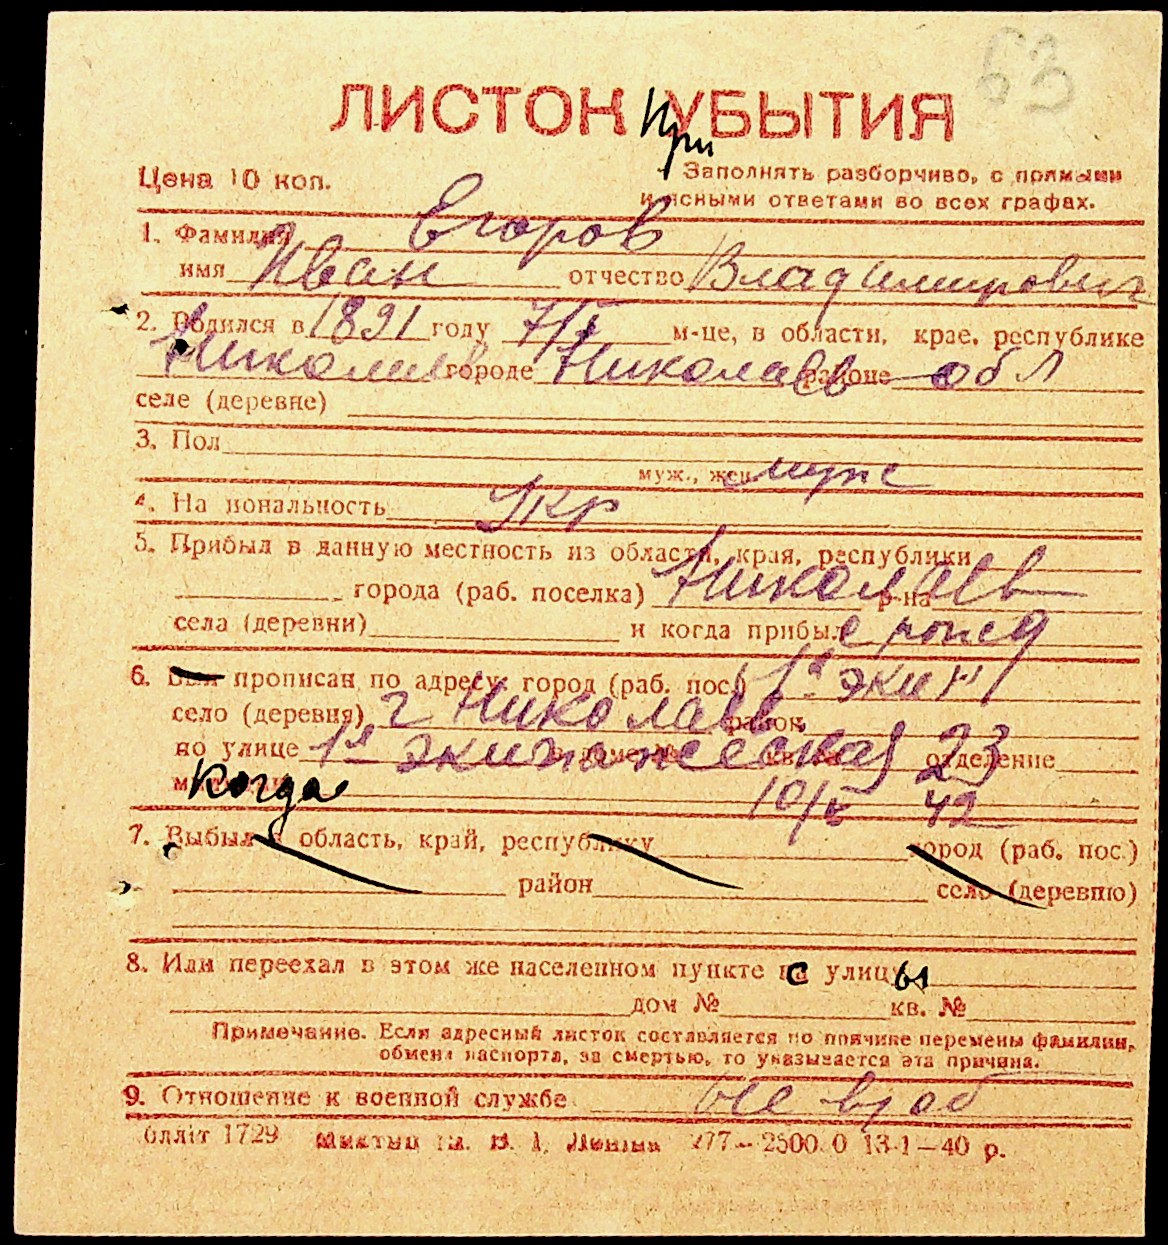 63
ЛИСТОК УБЫТИЯ
При
Цена 10 коп.
Заполнять разборчиво, с прямыми
и ясными ответами во всех графах.
1. Фамилия Егоров
имя Иван отчество Владимирович
2. Родился в 1891 году 7/I м-це, в области, крае, республике
Николаев городе Николаев районе обл
селе (деревне)
3. Пол
муж., жен. муж
4. Национальность Укр
5. Прибыл в данную местность из области, края, республики
города (раб. поселка) Николаев р-на
села (деревни) и когда прибыл с рожд
6. Был прописан по адресу, город (раб. пос.) 1я экип
село (деревня) г Николаев район
по улице 1я экипажеская 23 отделение
Когда 42
7. Выбыл в область, край, республику город (раб. пос.)
район село (деревню)
8. Или переехал в этом же населенном пункте с улицы
дом № кв. №
Примечание. Если адресный листок составляется по причине перемены фамилии,
обмена паспорта, за смертью, то указывается эта причина.
9. Отношение к военной службе не вооб
блліт 1729 277—2500.0 13-1—40 р.